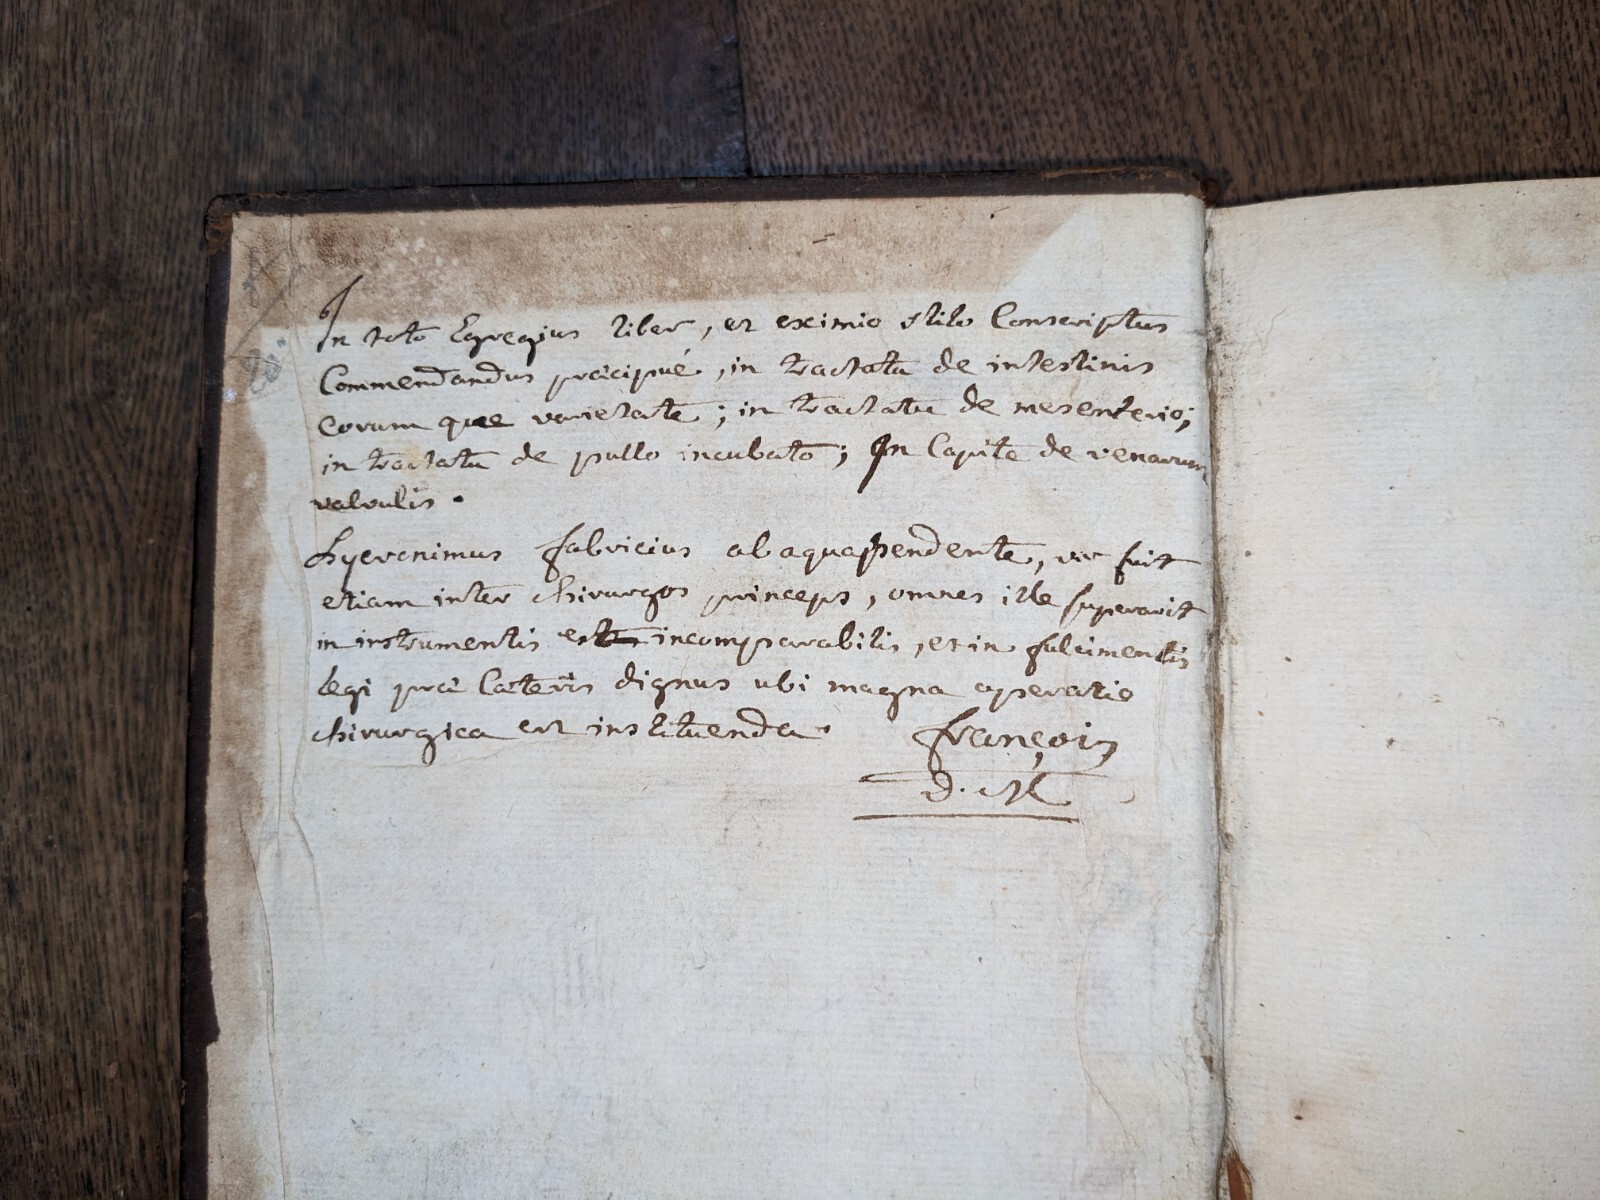 In toto Egregius liber, et eximio stilo Conscriptus
Commendandus præcipué, in tractatu de intestinis
eorum que varietate; in tractatu de mesenterio;
in tractatu de pullo incubato; In Capite de venarum
valvulis.
hyeronimus fabricius ab aquapendente, ut fuit
etiam inter chirurgos princeps, omnes ille superavit
in instrumentis est incomparabilis, et in fulcimentis
legi præ Cæteris dignus ubi magna operatio
chirurgica est instituenda.
françois
d. M